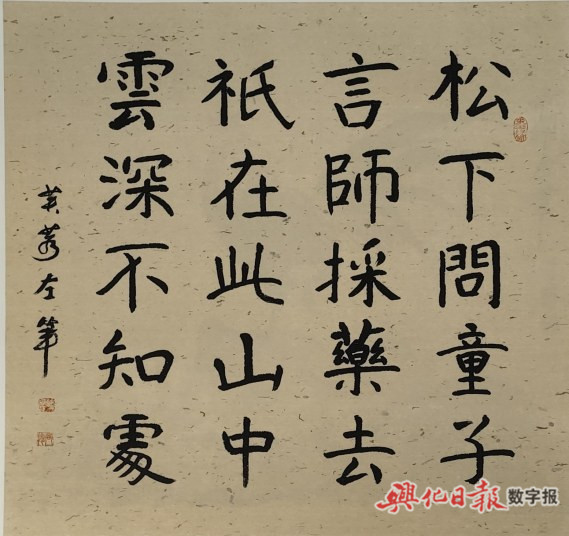 松下問童子
言師採藥去
祇在此山中
雲深不知處
左筆
興化日報 数字报